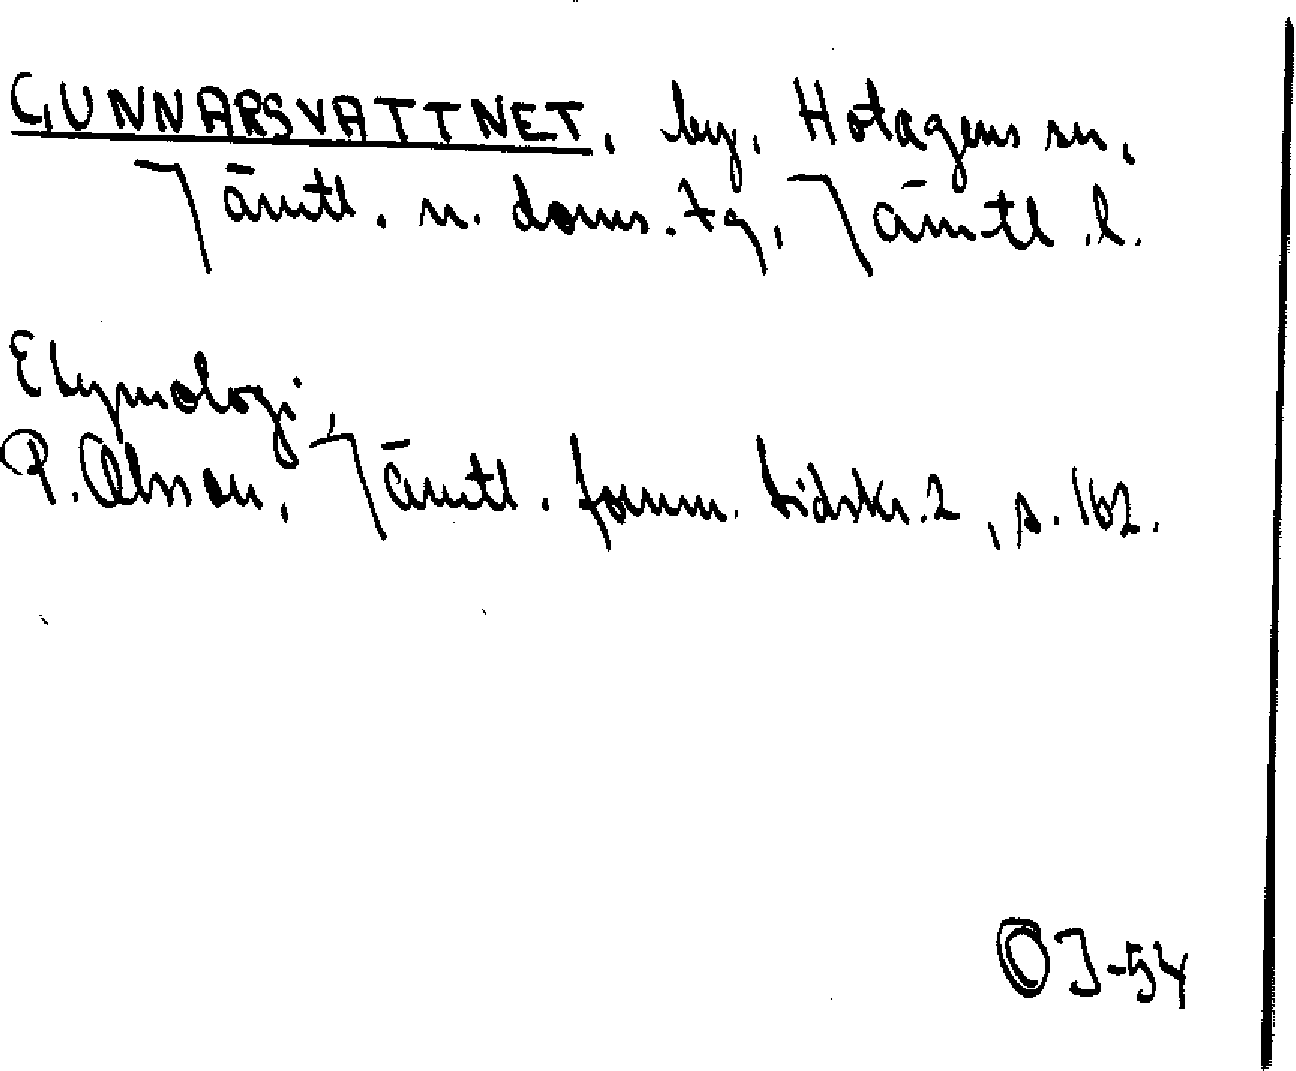 GUNNARSVATTNET, by, Hotagens sn,
Jämtl. n. doms. tg, Jämtl. l.
Etymologi,
P. Olsson, Jämtl. fornm. tidskr. 2, s. 162.
OJ-54